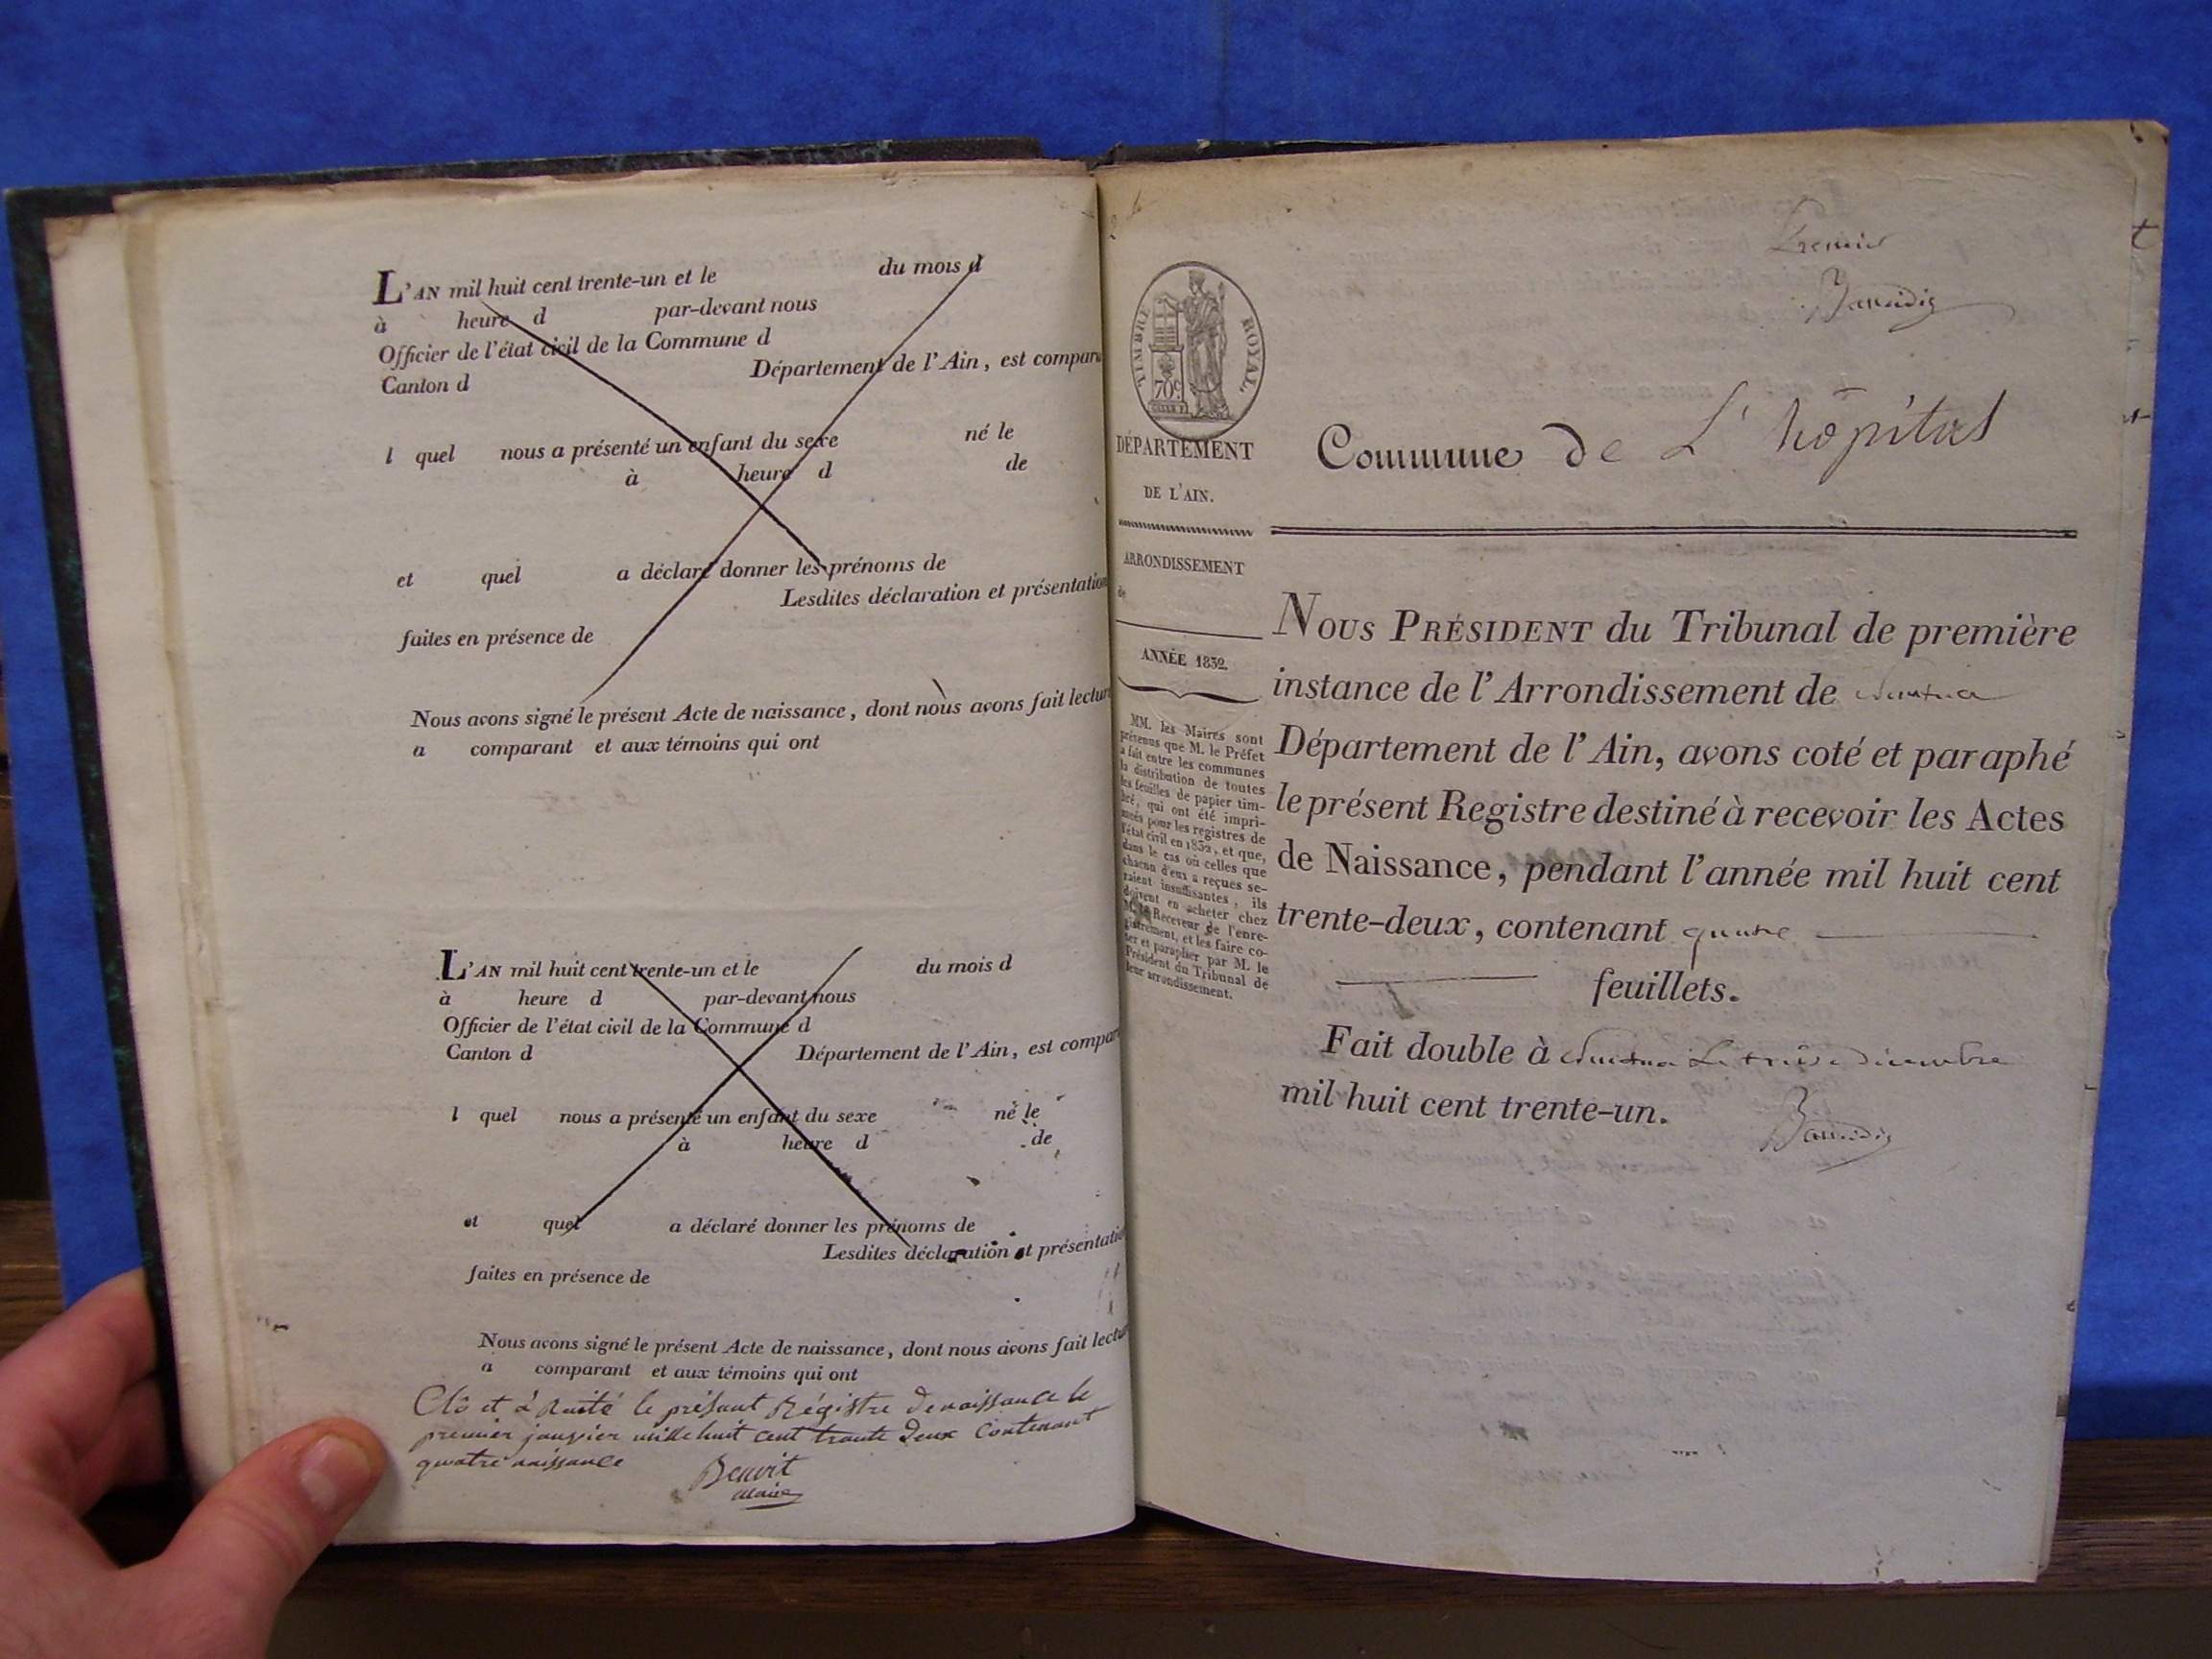 L'AN mil huit cent trente-un et le du mois d
à heure d par-devant nous
Officier de l'état civil de la Commune d
Canton d Département de l'Ain, est compar
l quel nous a présenté un enfant du sexe né le
à heure d de
et quel a déclaré donner les prénoms de
Lesdites déclaration et présentation
faites en présence de
Nous avons signé le présent Acte de naissance, dont nous avons fait lectur
a comparant et aux témoins qui ont
L'AN mil huit cent trente-un et le du mois d
à heure d par-devant nous
Officier de l'état civil de la Commune d
Canton d Département de l'Ain, est compar
l quel nous a présenté un enfant du sexe né le
à heure d de
et quel a déclaré donner les prénoms de
Lesdites déclaration et présentatio
faites en présence de
Nous avons signé le présent Acte de naissance, dont nous avons fait lectu
a comparant et aux témoins qui ont
Clô et le présant Régistre de naissance le
premier janvier mille huit cent trante deux Contenant
quatre naissance
Benoit
maire
Premier
TIMBRE ROYAL.
70c
DÉPARTEMENT
DE L'AIN.
ARRONDISSEMENT
de
ANNÉE 1832.
MM. les Maires sont
prévenus que M. le Préfet
a fait entre les communes
la distribution de toutes
les feuilles de papier tim-
bré, qui ont été impri-
mées pour les registres de
l'état civil en 1832, et que,
dans le cas où celles que
chacun d'eux a reçues se-
raient insuffisantes, ils
doivent en acheter chez
M. le Receveur de l'enre-
gistrement, et les faire co-
ter et parapher par M. le
Président du Tribunal de
leur arrondissement.
Commune de L'hôpital
NOUS PRÉSIDENT du Tribunal de première
instance de l'Arrondissement de Nantua
Département de l'Ain, avons coté et paraphé
le présent Registre destiné à recevoir les Actes
de Naissance, pendant l'année mil huit cent
trente-deux, contenant quatre
feuillets.
Fait double à Nantua Le treize décembre
mil huit cent trente-un.